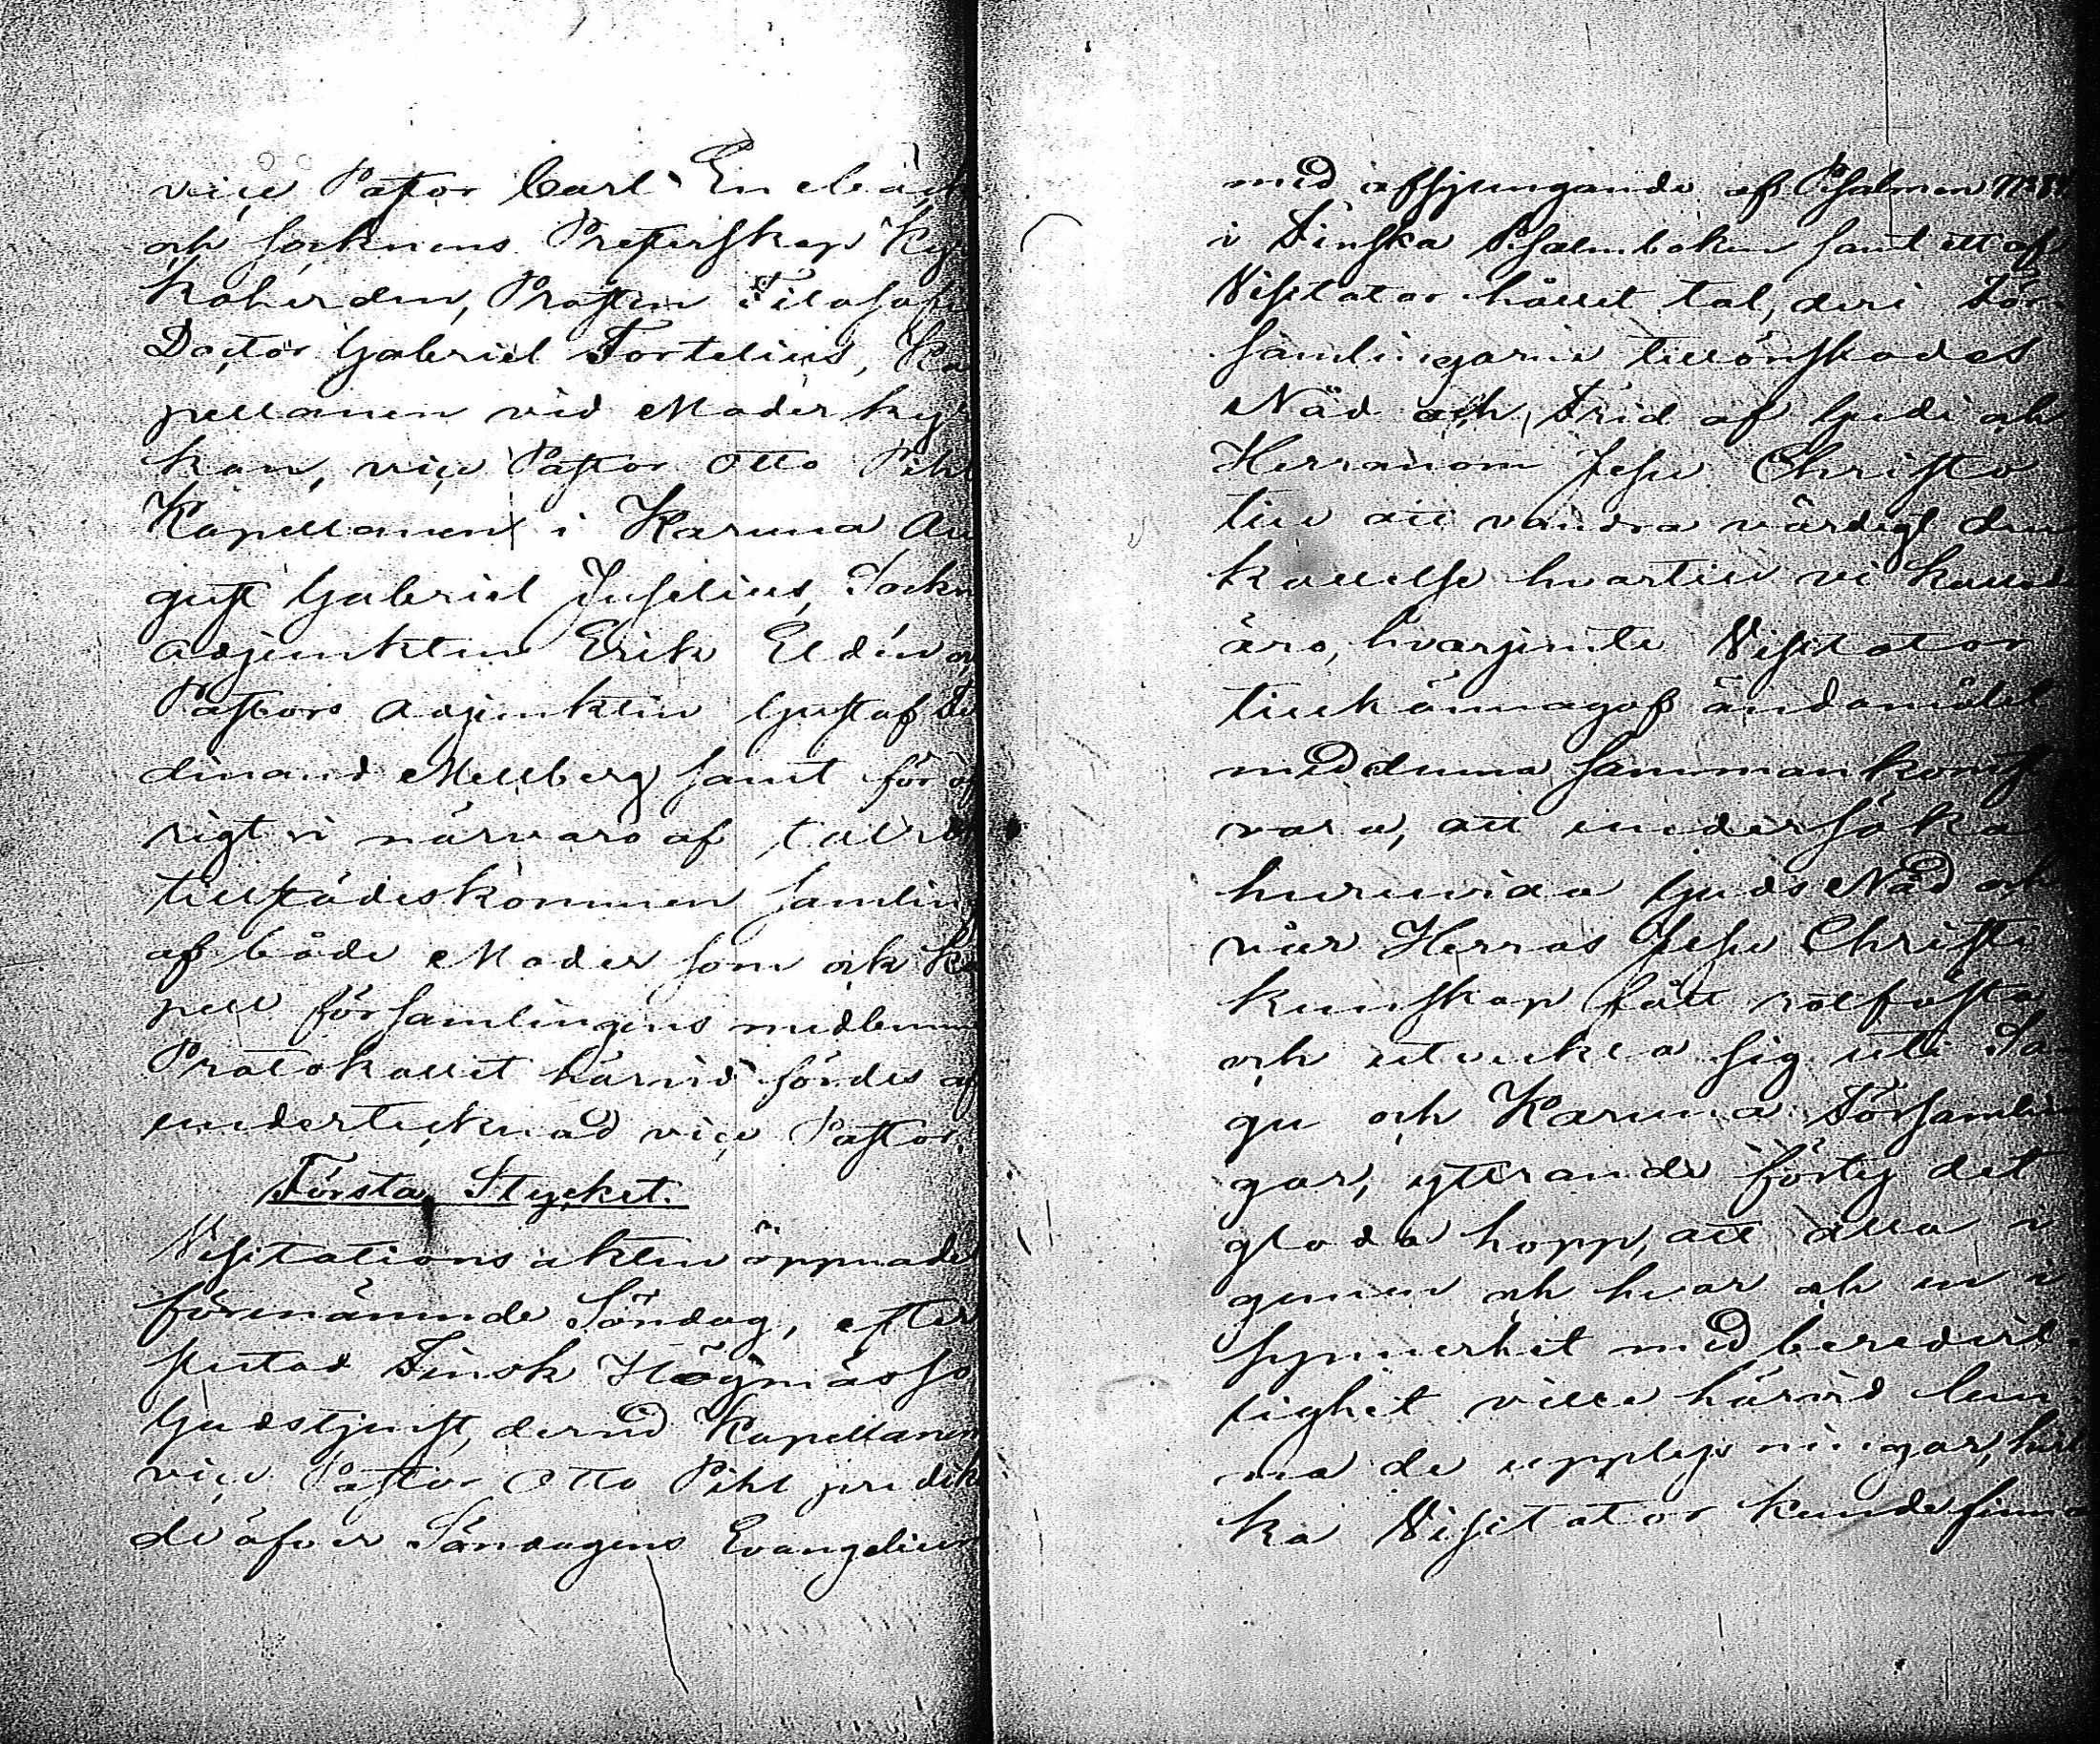 vice Pastor Carl Enebäck
och socknens Presterskap Kyr
koherden, Prosten Filosofie
Doctor Gabriel Fortelius, Ka
pellanen vid Moderkyr
kan, vice Pastor Otto Pihl
Kapellanen i Karuna Au
gust Gabriel Juselius, Sockne
Adjunkten Erik Eldén och
Pastors Adjunkten Gustaf Fer
dinand Mellberg samt för öf
rigt i närvaro af talrikt
tillstädeskommen samling
af både Moder som ock Ka
pell församlingens medlemmar
Protokollet härvid fördes af
undertecknad vice Pastor.
Första Stycket.
Visitations akten öppnades
förenämnde Söndag, efter
slutad Finsk Högmässo
Gudstjenst, dervid Kapellanen
vice Pastor Otto Pihl predika
de öfver Söndagens Evangelium
med afsjungande af Psalmen No
i Finska Psalmboken samt ett af
Visitator hållet tal, deri För
samlingarne tillönskades
Nåd och Frid af Gudi och
Herranom Jesu Christo
till att vandra värdigt den
kallelse hvartill vi kallade
äro, hvarjemte Visitator
tillkännagaf ändamålet
med denna sammankomst
vara, att undersöka
huruvida Guds Nåd och
vår Herras Jesu Christi
kunskap fått rotfästa
och utveckla sig uti Sa
gu och Karuna Församlin
gar, yttrande förty det
glada hopp, att alla i
gemen och hvar och en i
synnerhet med beredvil
lighet ville härvid lem
na de upplysningar, hvil
ka Visitator kunde finna